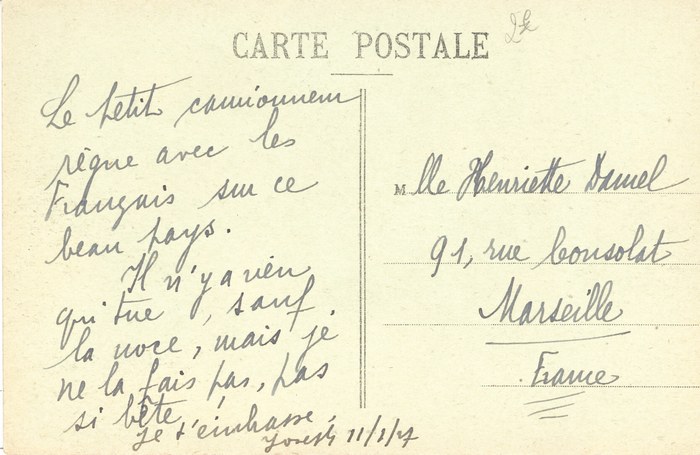 CARTE POSTALE
Le petit camionneur
règne avec les
Français sur ce
beau pays.
Il n'y a rien
qui tue, sauf
la noce, mais je
ne la fais pas, pas
si bête,
je t'embrasse,
Joseph 11/1/27
Mlle Henriette Daniel
91, rue Consolat
Marseille
France